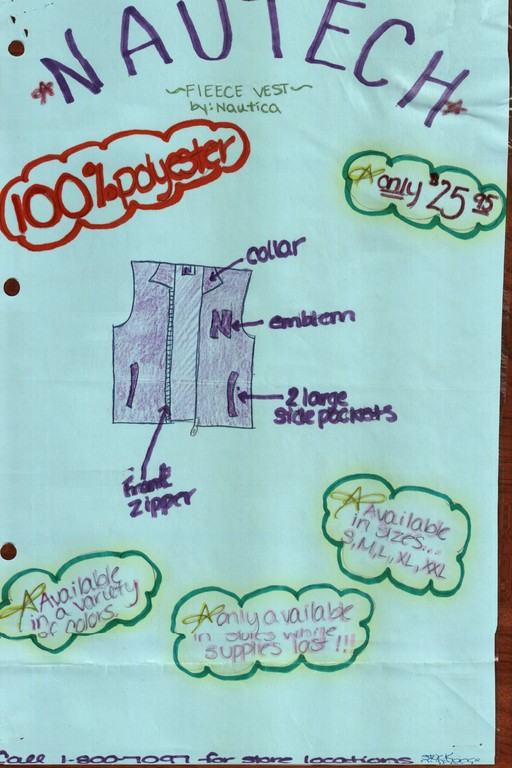 NAUTECH
~FIEECE VEST~
by: Nautica
100% polyester
only $25.95
N
collar
N
emblem
2 large
side pockets
Front
zipper
Available
in sizes...
S, M, L, XL, XXL
Available
in a variety
of colors
only available
in stores while
supplies last!!!
Call 1-800-7097 for store locations